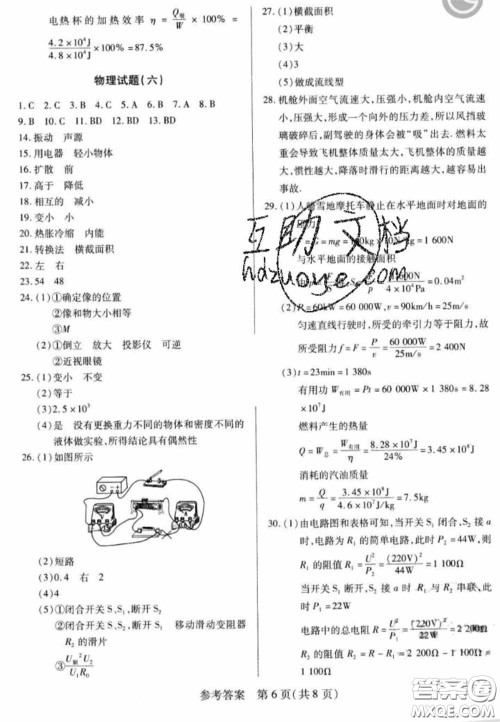 电热杯的加热效率 η = Q吸/W × 100% =
4.2×10⁴J/4.8×10⁴J × 100% = 87.5%
物理试题(六)
1. C 2. C 3. B 4. C 5. C 6. A 7. A 8. B
9. B 10. C 11. BD 12. BD 13. BD
14. 振动 声源
15. 用电器 轻小物体
16. 扩散 前
17. 高于 降低
18. 相互的 减小
19. 变小 小
20. 热胀冷缩 内能
21. 转换法 横截面积
22. 左 右
23. 54 48
24. (1)①确定像的位置
②像和物大小相等
③M
(2)①倒立 放大 投影仪 可逆
②近视眼镜
25. (1)变小 不变
(2)等于
(3)2.5×10³
(4)是 没有更换重力不同的物体和密度不同的
液体做实验,所得结论具有偶然性
26. (1)如图所示
(2)短路
(3)0.4 右 2
(4)4
(5)①闭合开关 S、S₁,断开 S₂
②闭合开关 S、S₂,断开 S₁ 移动滑动变阻器
R₂ 的滑片
27. (1)横截面积
(2)平衡
(3)大
(4)3
(5)做成流线型
28. 机舱外面空气流速大,压强小,机舱内空气流速
小,压强大,形成一个向外的压力差,所以风挡玻
璃破碎后,副驾驶的身体会被“吸”出去. 燃料太
重会导致飞机整体质量太大,飞机整体的质量越
大,惯性越大,降落时滑行的距离越大,越容易出
事故.
29. (1)人骑雪地摩托车静止在水平地面时对地面的
= G = mg = 160kg × 10N/kg = 1 600N
与水平地面的接触面积
4×10⁴Pa = 0.04m²
(2)P = 60kW = 60 000W, v = 90km/h = 25m/s
匀速直线行驶时,所受的牵引力等于阻力,故
所受阻力 f = F = P/v = 60 000W/25m/s = 2 400N
(3)t = 23min = 1 380s
有用功 W有用 = Pt = 60 000W × 1 380s = 8.28
×10⁷J
燃料产生的热量
Q = W总 = W有用/η = 8.28×10⁷J/24% = 3.45×10⁸J
消耗的汽油质量
30. (1)由电路图和表格可知,当开关 S₁ 闭合,S₂ 断
电路为 R₁ 的简单电路,此时 P₂ = 44W,则
R₁ 的阻值 R₁ = U²/P₂ = (220V)²/44W = 1 100Ω
当开关 S₁ 断开,S₂ 接 a 时 R₁ 与 R₂ 串联,此
时 P₁ = 22W
电路中的总电阻 R = U²/P₁ = (220V)²/22W = 2 200Ω
1 100Ω
参考答案 第 6 页(共 8 页)
互助文档
hdzuoye.com